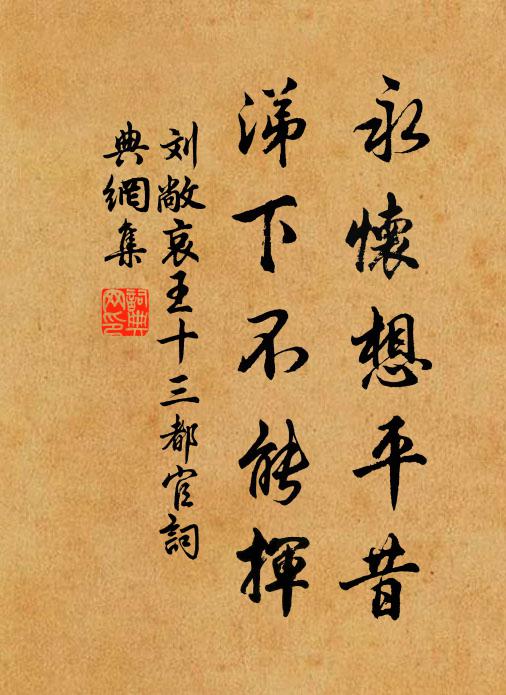 永懷想平昔
涕下不能揮
刘敞哀王十三都官詞
典網集
詞典
网印